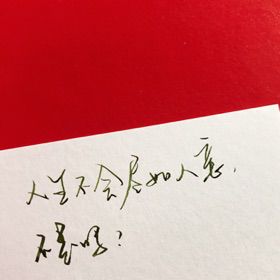 人生不会尽如人意，
不是吗？